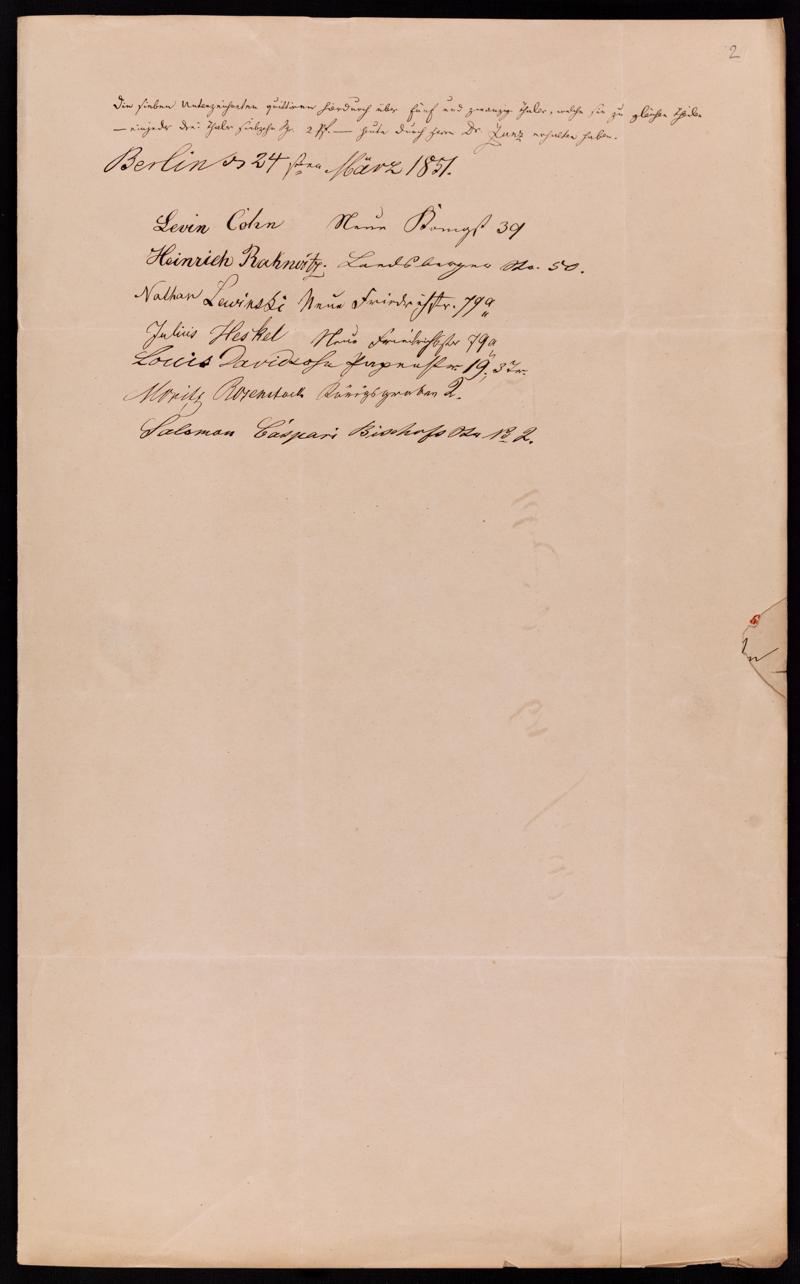 2
Die sieben Unterzeichneten quittiren hierdurch über fünf und zwanzig Thaler, welche sie zu gleichen Theilen
— einjeder drei Thaler siebzehn Sgr. 2 Pf. — heute durch Herrn Dr. Zunz erhalten haben.
Berlin 24sten März 1851.
Levin Cohn Neue Königst 39
Heinrich Landsberger Str. 50.
Nathan Lewinski Neue Friedrichstr. 79a
Julius Heskel Neue Friedrichstr 79a
Louis Davidsohn Papenstr. 19, 3 Tr.
Moritz Rosenstock Königsgraben 2.
Salomon Caspari Bischofs Str No 2.